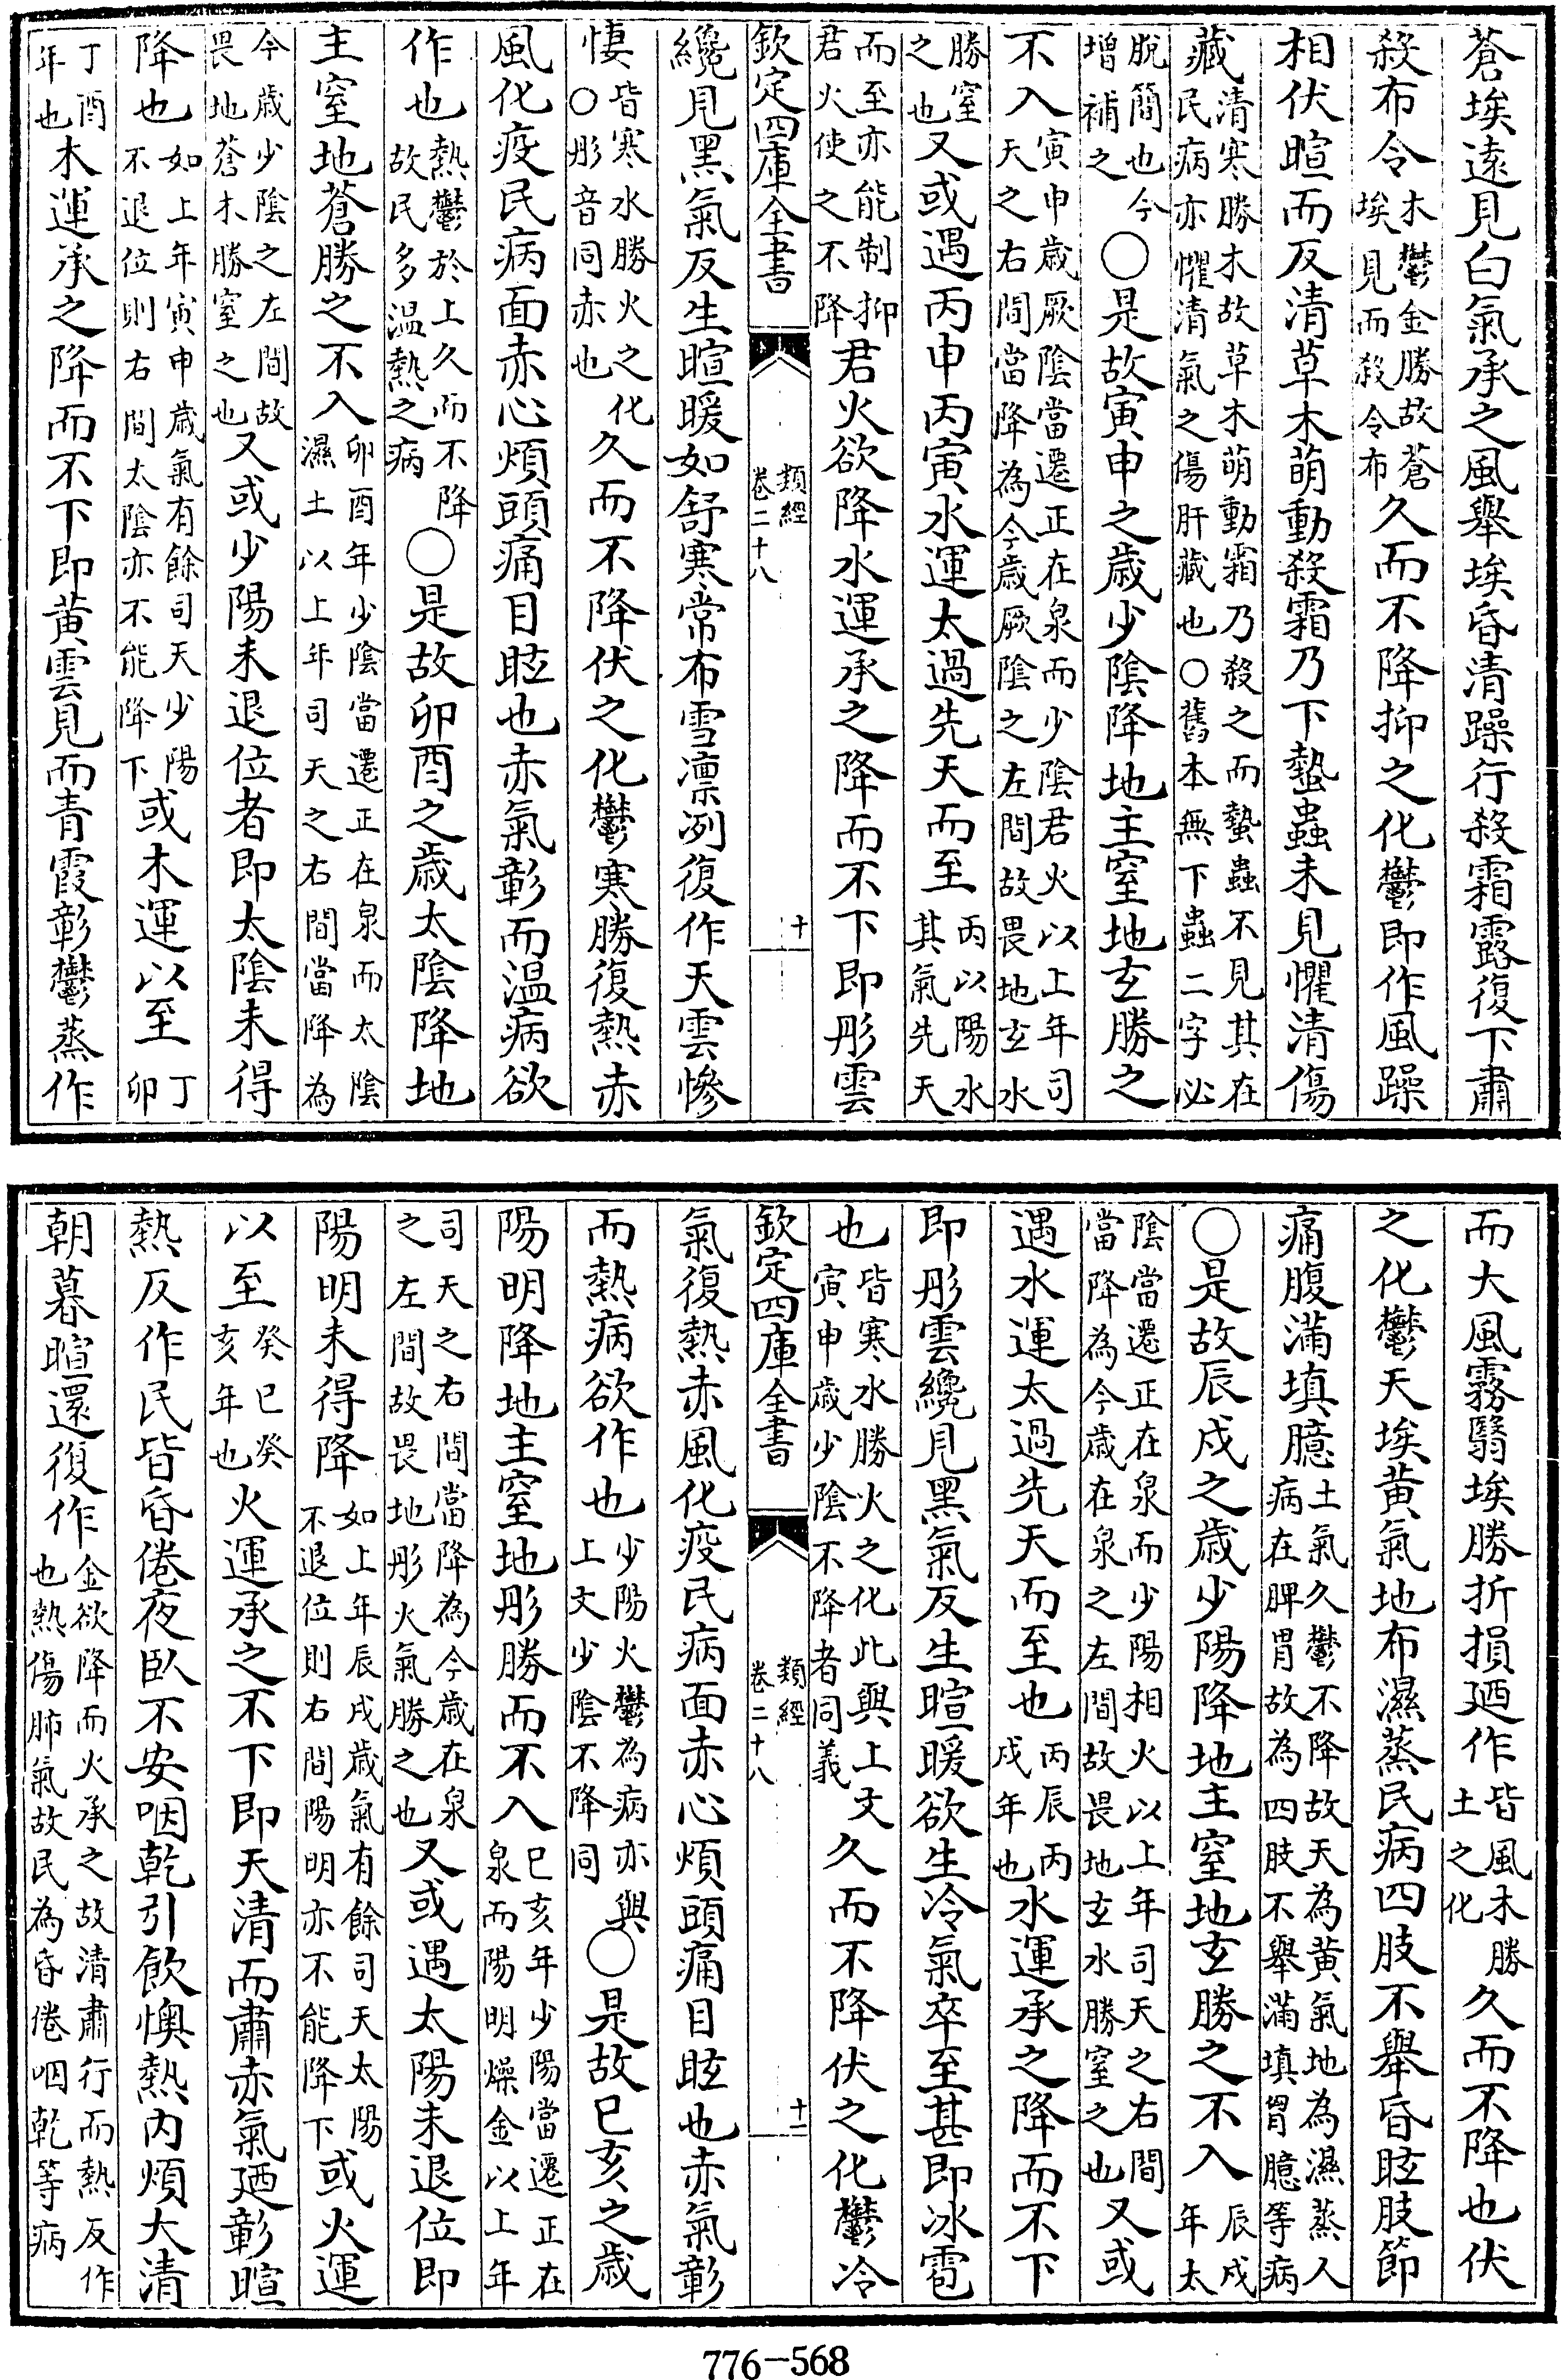 蒼埃遠見白氣承之風舉埃昏清躁行殺霜露復下肅
殺布令木鬱金勝故蒼埃見而殺令布久而不降抑之化鬱即作風躁
相伏暄而反清草木萌動殺霜乃下蟄蟲未見懼清傷
藏清寒勝木故草木萌動霜乃殺之而蟄蟲不見其在藏民病亦懼清氣之傷肝藏也○舊本無下蟲二字必
脫簡也今增補之○是故寅申之歲少陰降地主窒地玄勝之
不入寅申歲厥陰當遷正在泉而少陰君火以上年司天之右間當降為今歲厥陰之左間故畏地玄水
勝窒之也又或遇丙申丙寅水運太過先天而至丙以陽水其氣先天
而至亦能制抑君火使之不降君火欲降水運承之降而不下即彤雲
欽定四庫全書 類經 卷二十八 十
纔見黑氣反生暄暖如舒寒常布雪凛冽復作天雲慘
悽皆寒水勝火之化○彤音同赤也久而不降伏之化鬱寒勝復熱赤
風化疫民病面赤心煩頭痛目眩也赤氣彰而温病欲
作也熱鬱於上久而不降故民多温熱之病○是故卯酉之歲太陰降地
主窒地蒼勝之不入卯酉年少陰當遷正在泉而太陰濕土以上年司天之右間當降為
今歲少陰之左間故畏地蒼木勝窒之也又或少陽未退位者即太陰未得
降也如上年寅申歲氣有餘司天少陽不退位則右間太陰亦不能降下或木運以至丁卯
丁酉年也木運承之降而不下即黃雲見而青霞彰鬱蒸作
而大風霧翳埃勝折損廼作皆風木勝土之化久而不降也伏
之化鬱天埃黃氣地布濕蒸民病四肢不舉昏眩肢節
痛腹滿填臆土氣久鬱不降故天為黃氣地為濕蒸人病在脾胃故為四肢不舉滿填胷臆等病
○是故辰戌之歲少陽降地主窒地玄勝之不入辰戌年太
陰當遷正在泉而少陽相火以上年司天之右間當降為今歲在泉之左間故畏地玄水勝窒之也又或
遇水運太過先天而至也丙辰丙戌年也水運承之降而不下
即彤雲纔見黑氣反生暄暖欲生冷氣卒至甚即冰雹
也皆寒水勝火之化此與上文寅申歲少陰不降者同義久而不降伏之化鬱冷
欽定四庫全書 類經 卷二十八 十一
氣復熱赤風化疫民病面赤心煩頭痛目眩也赤氣彰
而熱病欲作也少陽火鬱為病亦與上文少陰不降同○是故巳亥之歲
陽明降地主窒地彤勝而不入巳亥年少陽當遷正在泉而陽明燥金以上年
司天之右間當降為今歲在泉之左間故畏地彤火氣勝之也又或遇太陽未退位即
陽明未得降如上年辰戌歲氣有餘司天太陽不退位則右間陽明亦不能降下或火運
以至癸巳癸亥年也火運承之不下即天清而肅赤氣廼彰暄
熱反作民皆昏倦夜臥不安咽乾引飲懊熱內煩大清
朝暮暄還復作金欲降而火承之故清肅行而熱反作也熱傷肺氣故民為昏倦咽乾等病
776-568